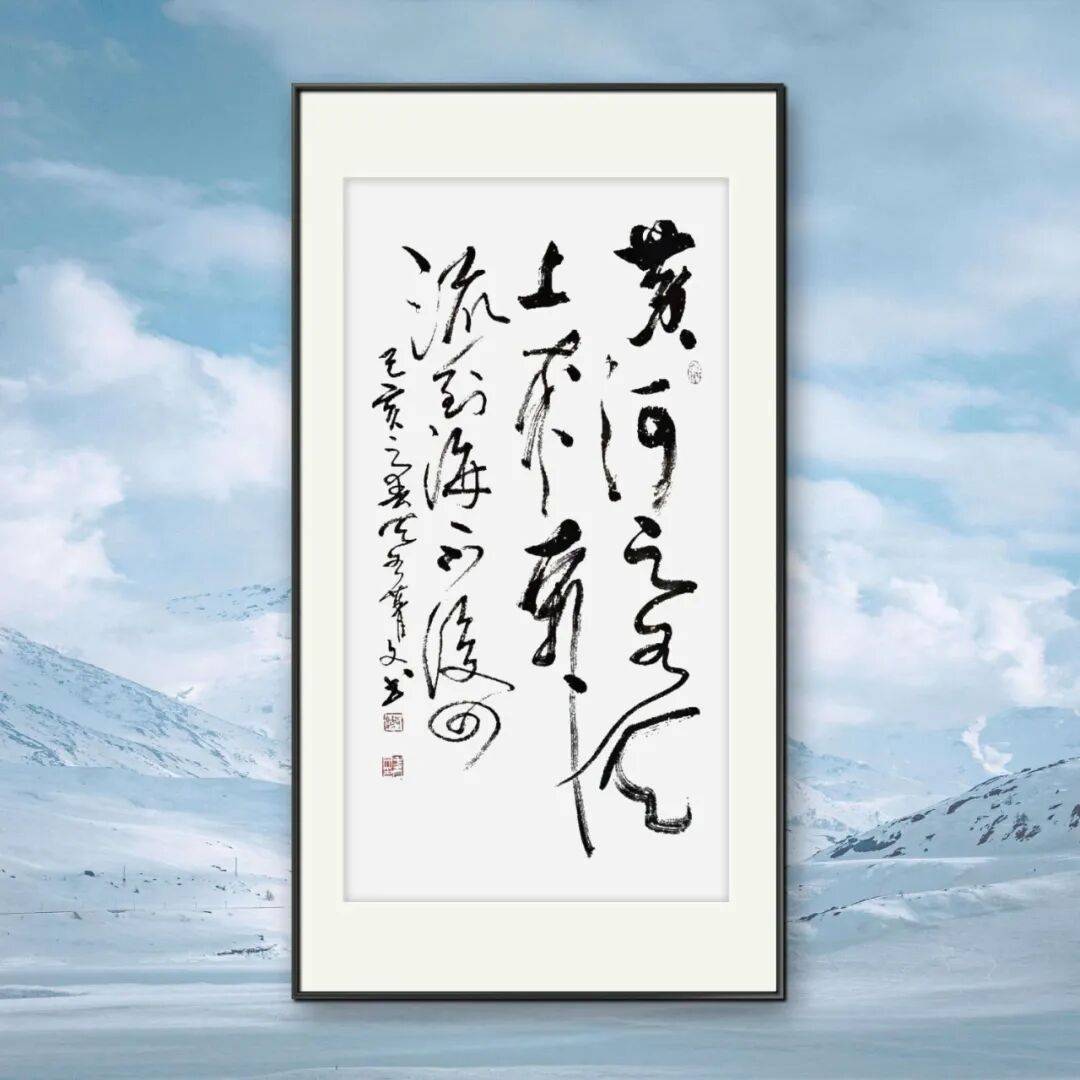 黄河之水天
上來奔
流到海不復回
己亥之春文书